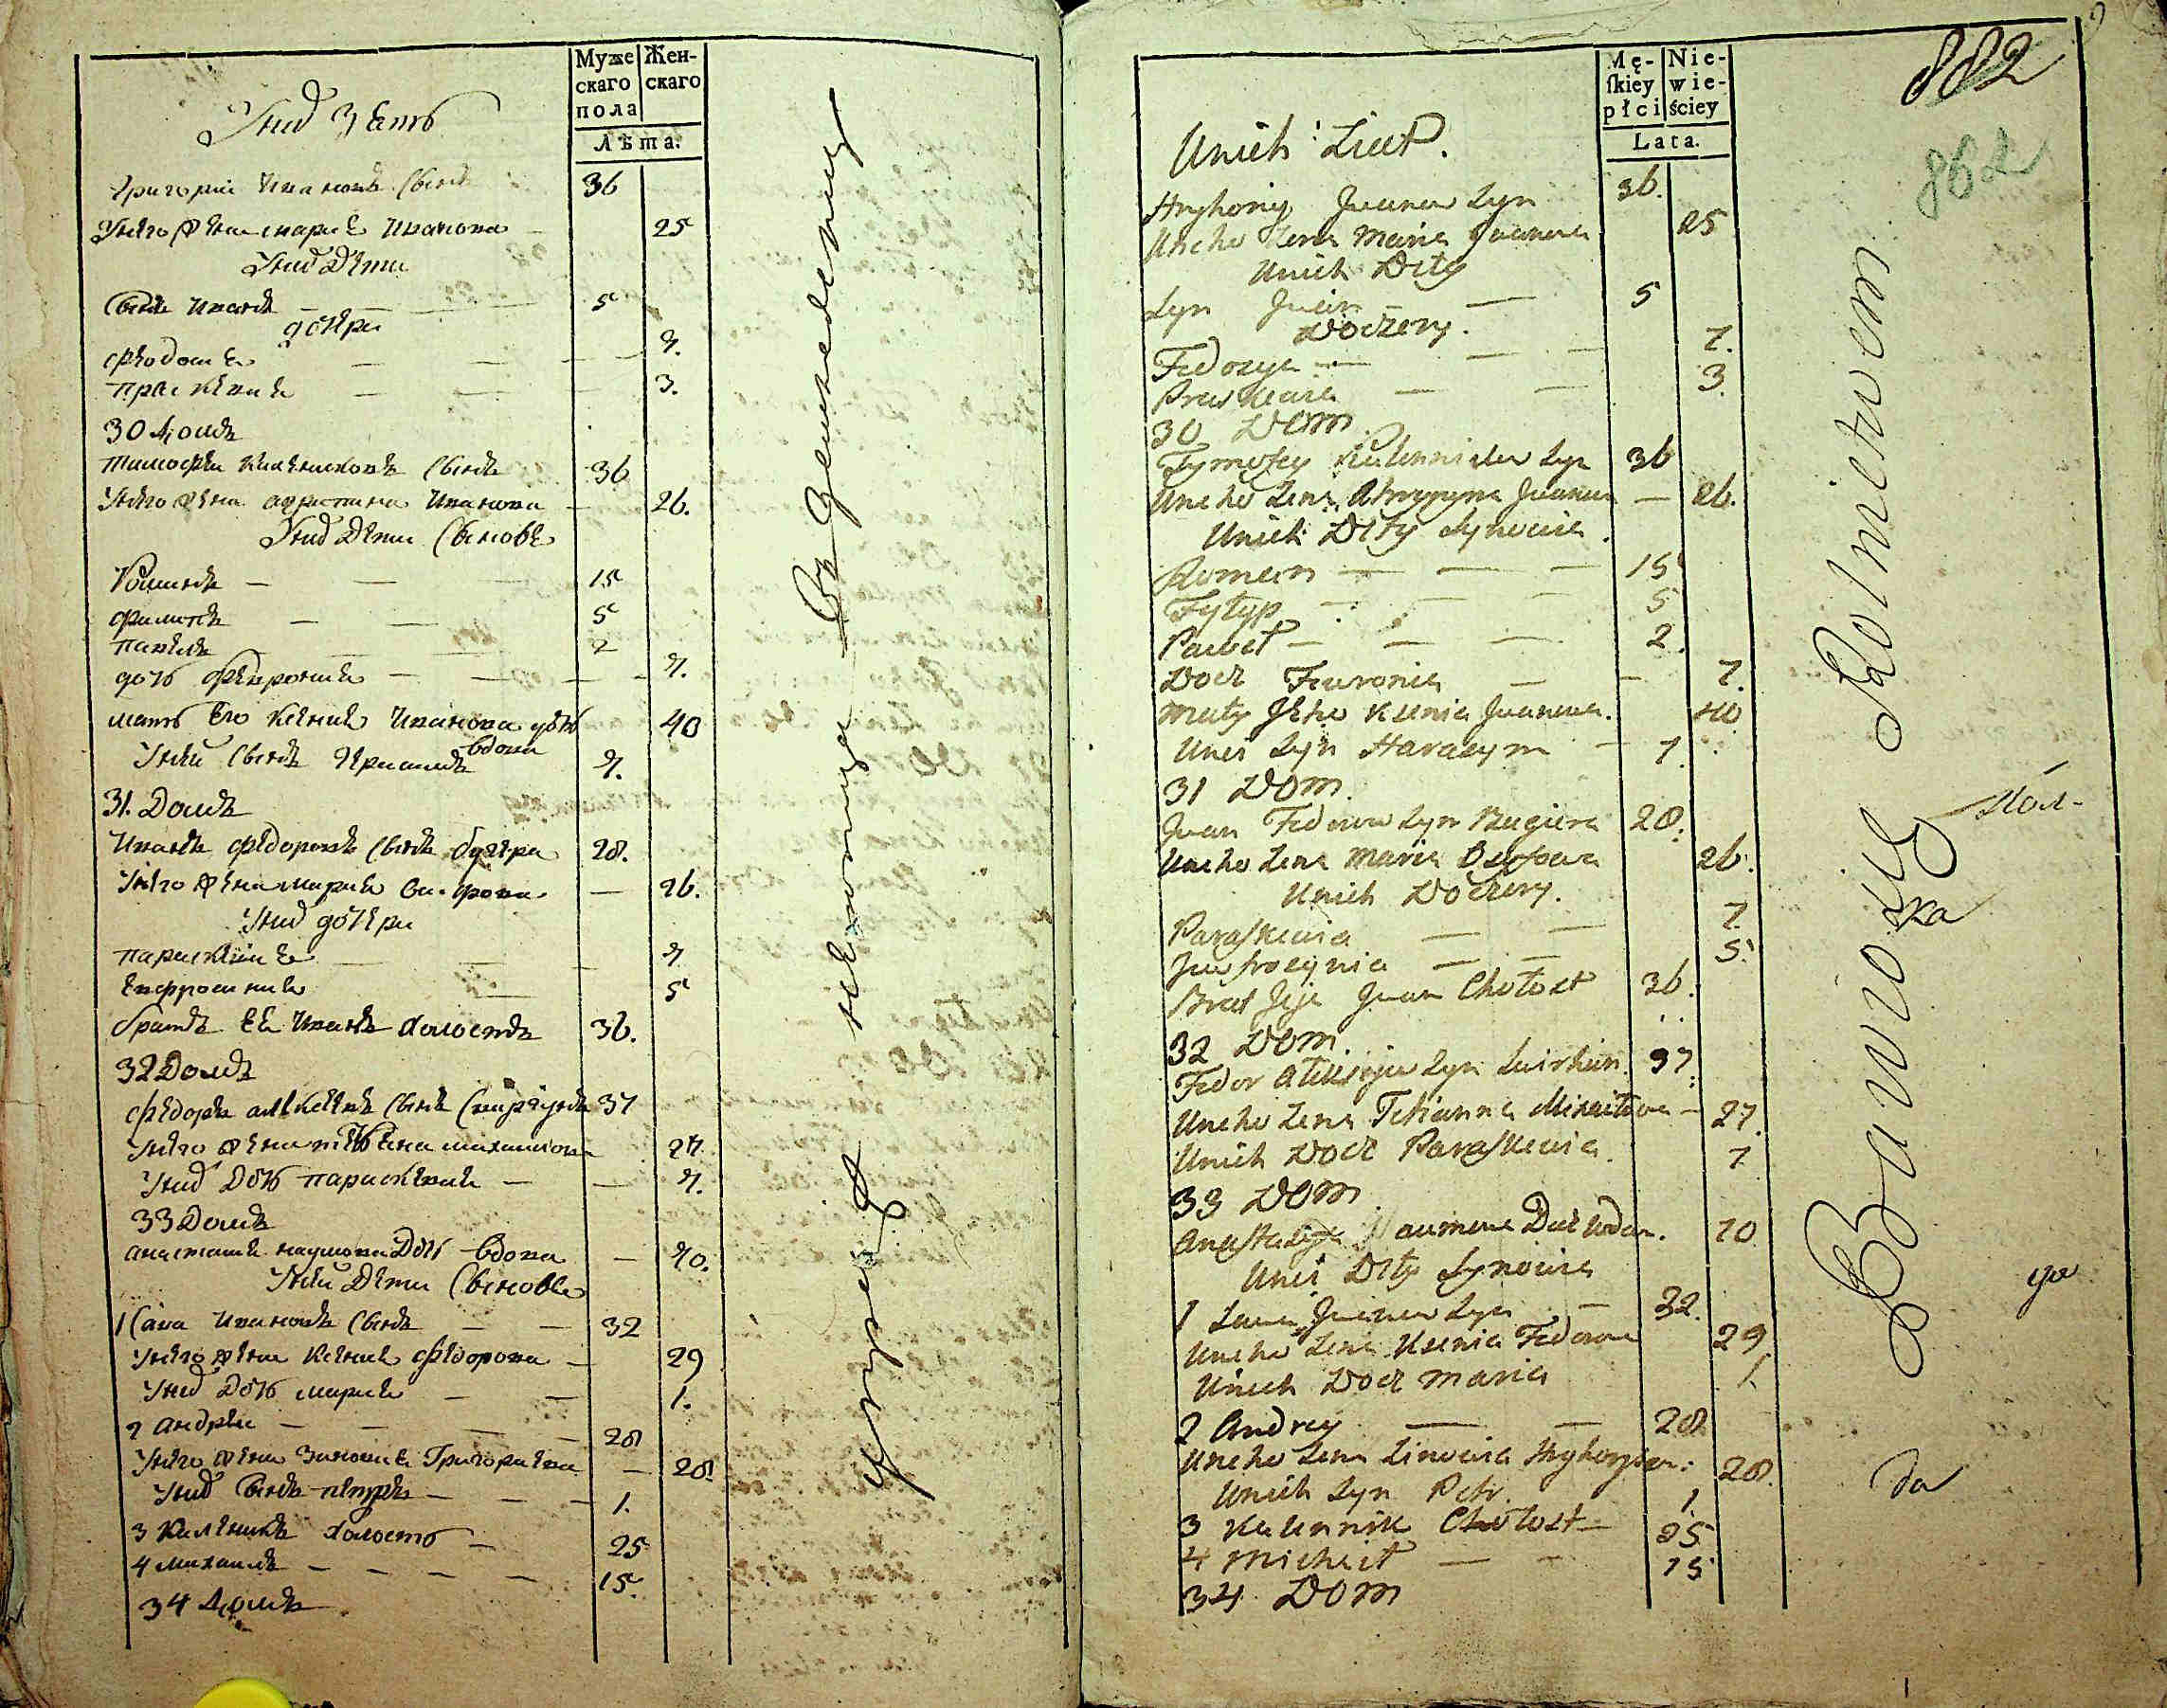 Муже Жен-
скаго скаго
пола
Лѣта.
Унихъ Зять
Григорій Ивановъ Сынъ 36
Унего жена марія Иванова 25
Унихъ Дѣти
Сынъ Иванъ 5
дочери
Ѳеодосія 7.
Прасковія 3.
30 Домъ
Тимофѣй Калениковъ Сынъ 36
Унего жена агрипина Иванова 26.
Унихъ Дѣти Сыновѣ
Романъ 15
филипъ 5
Павелъ 2
дочь февронія 7.
мать Его Ксенія Иванова дочь вдова 40
Унеи Сынъ Герасимъ 7.
31. Домъ
Иванъ федоровъ Сынъ бугера 28.
Унего жена марія 26.
Унихъ дочери
Параскевія 7
Евфросинія 5
братъ Ея Иванъ холостъ 36.
32 Домъ
федоръ алексеевъ Сынъ 37
Унего жена татіана михаилова 27
Унихъ Дочь параскевія 7.
33 Домъ
анастасія наумова Дочь вдова 70.
Унеи Дѣти Сыновѣ
1 Сава Ивановъ Сынъ 32
Унего жена Ксенія федорова 29
Унихъ Дочь марія 1.
2 андрей 28
Унего жена Зиновія Григоріева 28
Унихъ Сынъ петръ 1.
3 Каленикъ холостъ 25
4 михаилъ 15.
34 Домъ
Mę- Nie-
ſkiey wie-
płci ściey
Lata.
882
862
Unich Ziat.
Hryhoriy Juanu Syn 36.
Uneho Zena Maria Juanowa 25
Unich Dity
Syn Juan 5
Doczery.
Fedosya 7.
Praskewia 3.
30 Dom
Tymofey Kalennikow Syn 36
Uneho Zena Ahrypyna Juanowa 26.
Unich Dity Synowia
Roman 15
Fylyp 5
Paweł 2.
Docz Fewronia 7.
Maty Jeho Ksenia Juanowa. 40
Unei Syn Harasym 7.
31 Dom
Juan Fedorow Syn Bugiera 28.
Uneho Zena Maria 26.
Unich Doczery.
Paraſkewia 7.
Jewfrosynia 5.
Brat Jeje Juan Chołost 36.
32 Dom
Fedor Alexieju Syn 37
Uneho Zena Tetianna Michaiłowa 27.
Unich Docz Paraſkewia. 7
33 Dom
Anaſtasya Naumowa Docz wdowa. 70
Unei Dity Synowia
1 Sawa Juanow Syn 32.
Uneho Zena Ksenia Fedorowa 29
Unich Docz Maria 1.
2 Andrey 28
Uneho Zena Zinowia Hryhoryiewa 28.
Unich Syn Petr 1
3 Kalennik Chołost 25
4 Michaił 15
34 Dom